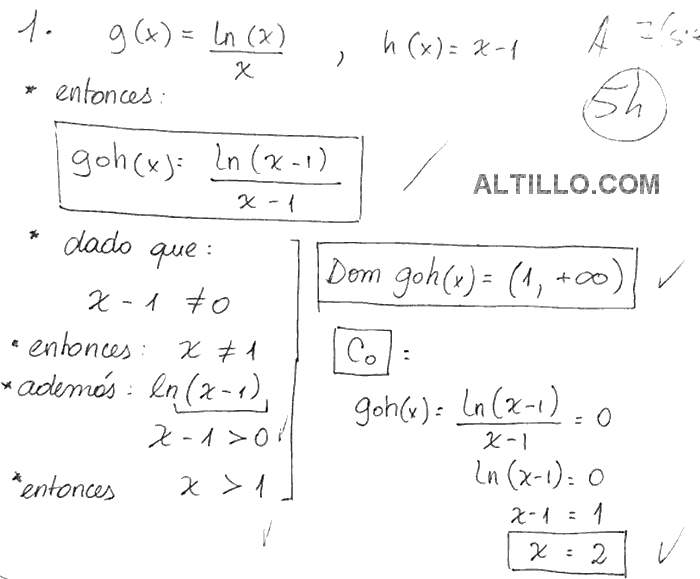 1. g(x) = ln(x)/x , h(x) = x-1
5h
* entonces:
goh(x) = ln(x-1)/x-1
ALTILLO.COM
* dado que:
x - 1 ≠ 0
• entonces: x ≠ 1
* además: ln(x-1)
x - 1 > 0
* entonces x > 1
Dom goh(x) = (1, +∞)
C₀ :
goh(x) = ln(x-1)/x-1 = 0
ln(x-1) = 0
x-1 = 1
x = 2